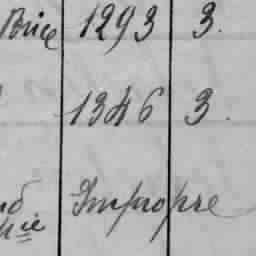 Brice 1293 3.
1346 3.
Impropre